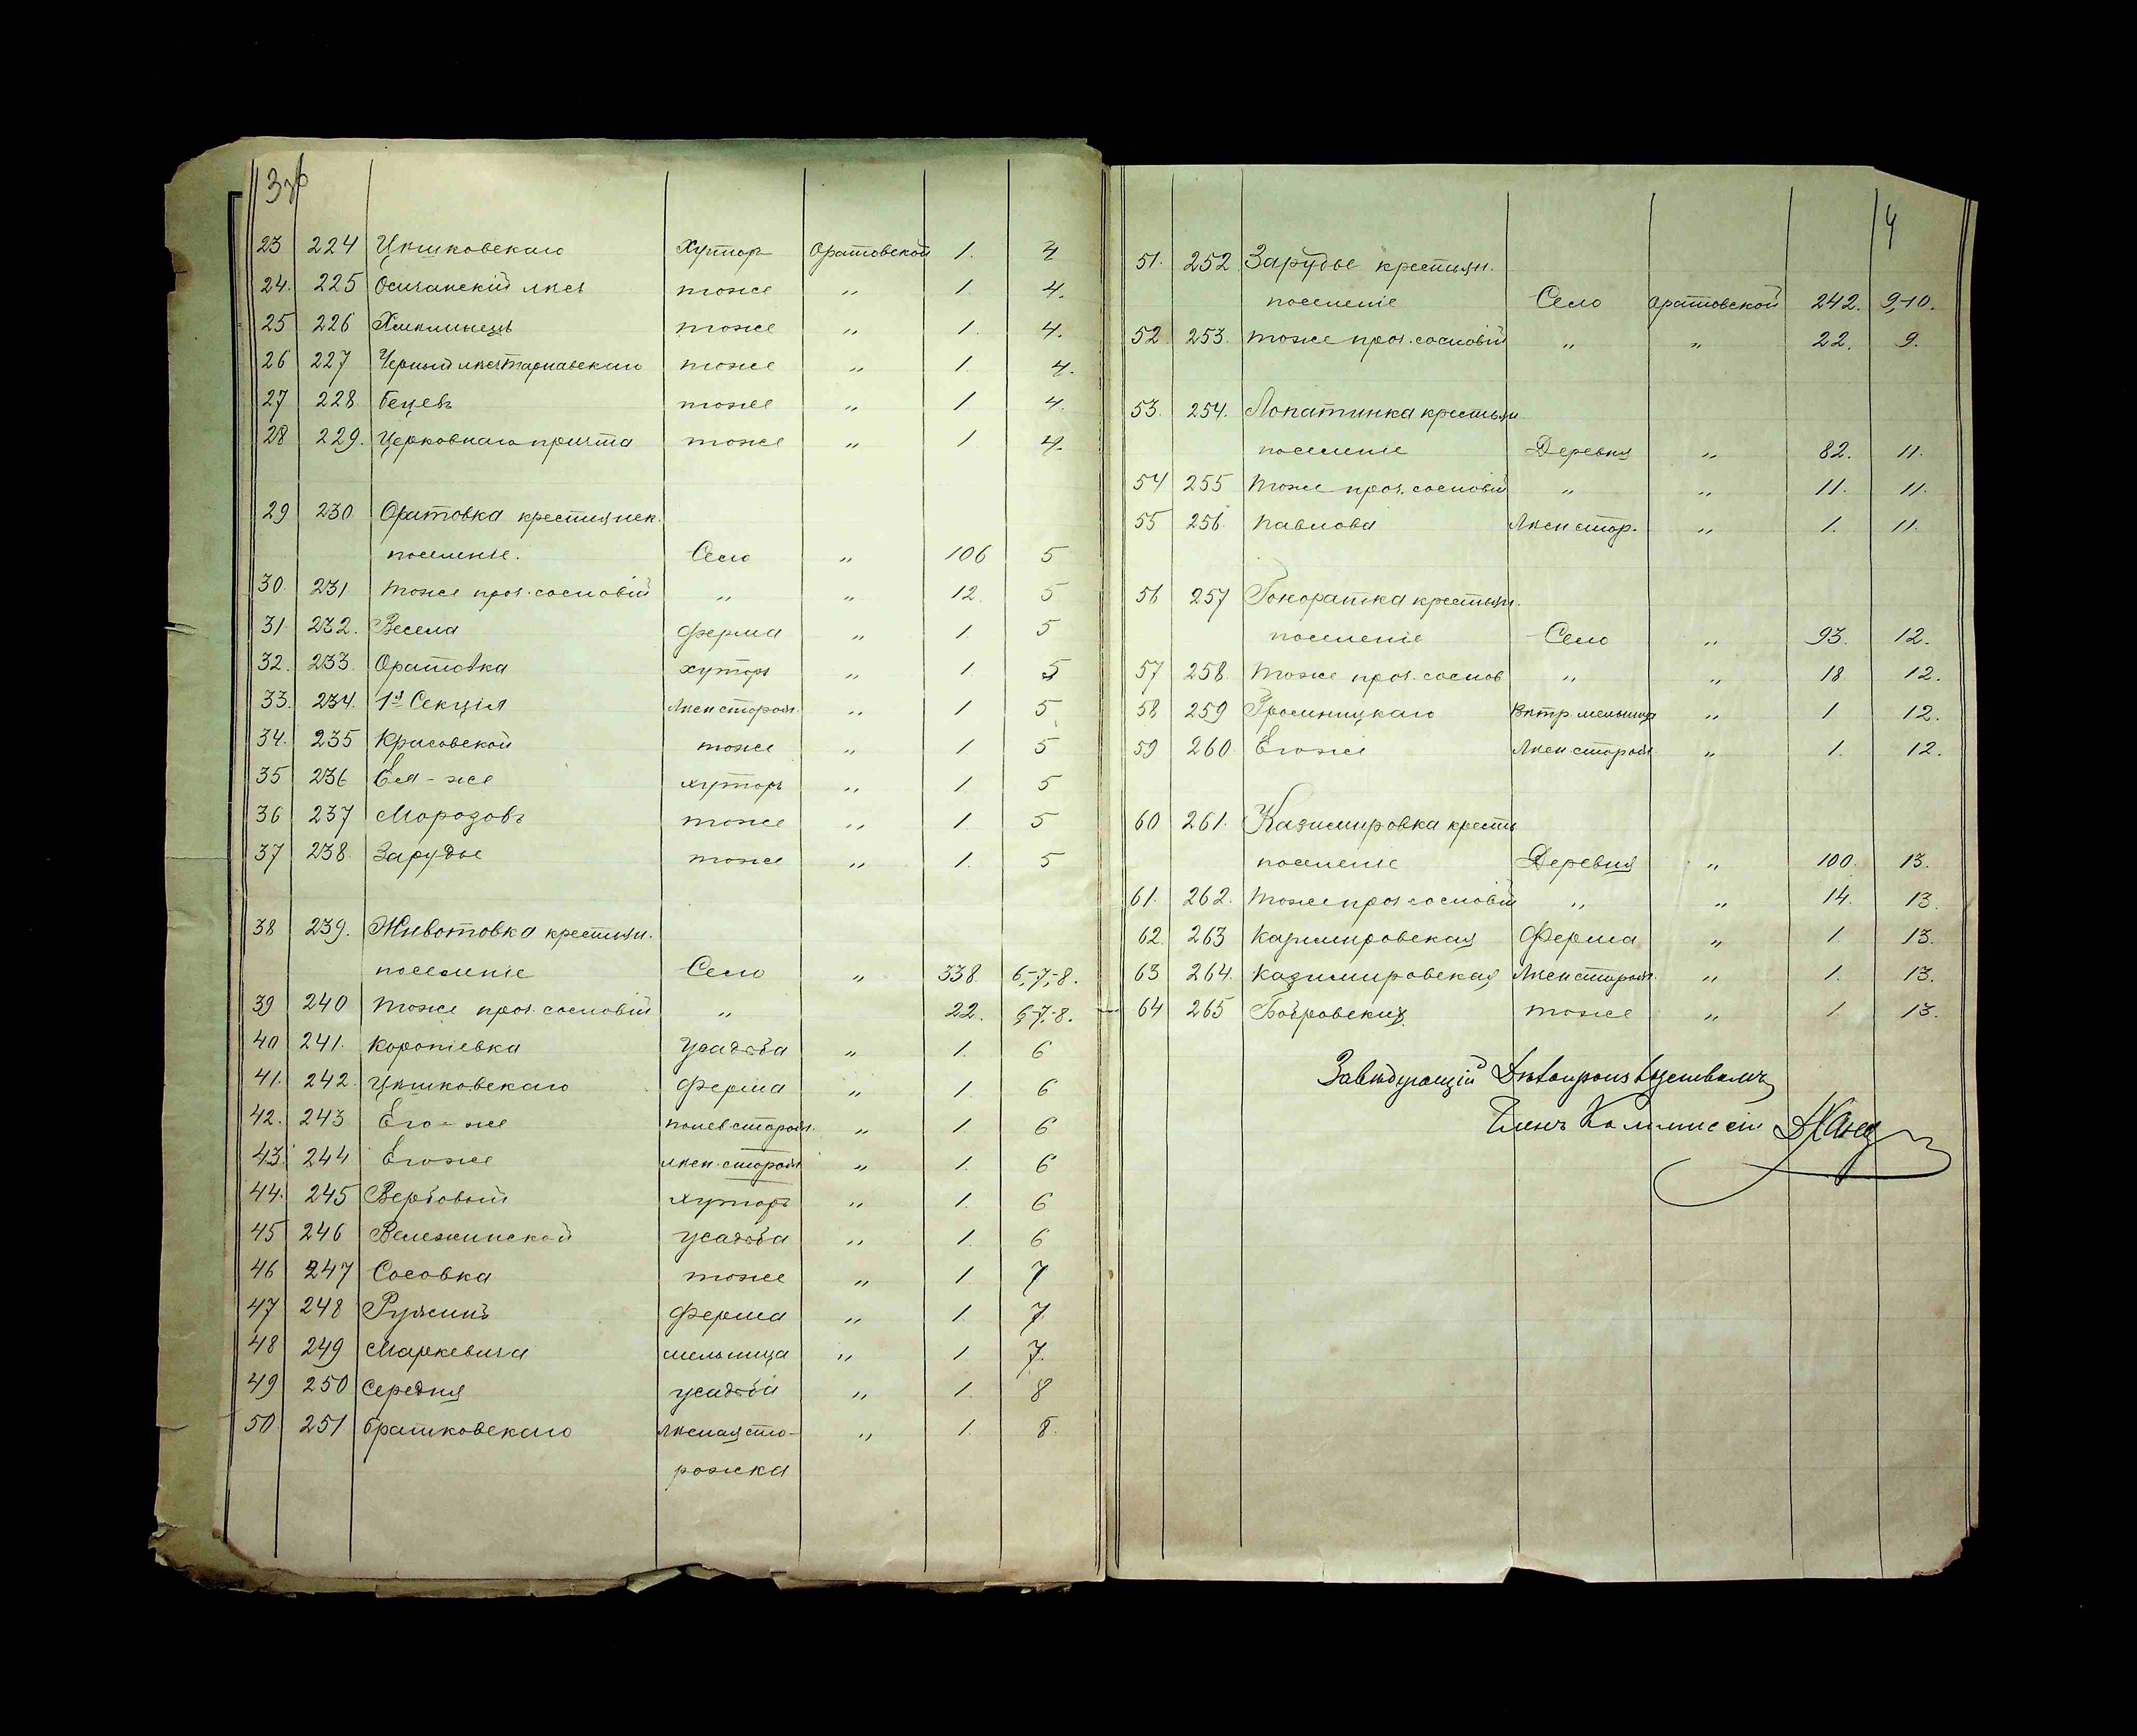 3
23 224 Цѣшковскаго Хуторъ Оратовской 1. 4
24. 225 Осичанскій лѣсъ тоже " 1. 4.
25 226 тоже " 1. 4.
26 227 Черный лѣсъ Тарнавскаго тоже " 1. 4.
27 228. тоже " 1. 4.
28 229. Церковнаго причта тоже " 1 4.
29 230 Оратовка крестьянск.
поселеніе. Село " 106 5
30. 231 тоже проч. сословій " " 12. 5
31. 232. Весела ферма " 1. 5
32. 233. Оратовка хуторъ " 1. 5
33. 234. 1я Секція Лѣсн сторож. " 1 5
34. 235 Красовской тоже " 1 5
35 236 Ея-же хуторъ " 1 5
36 237 Морозовъ тоже " 1. 5
37 238. Зарудье тоже " 1. 5
38 239. Животовка крестьян.
поселеніе Село " 338. 6,-7,-8.
39 240 тоже проч. сословій " 22. 6-7,-8.
40 241. Коропіевка усадьба " 1. 6
41. 242. Цѣшковскаго ферма " 1. 6
42. 243 Его-же полев. сторож. " 1. 6
43. 244 Егоже лѣсн. сторож " 1. 6
44. 245 Вербовый хуторъ " 1. 6
45 246 Вележинской усадьба " 1. 6
46 247 Сосовка тоже " 1 7
47 248 Ружинъ ферма " 1 7
48 249 Маркевича мельница " 1 7.
49 250 Середня усадьба " 1. 8
50. 251 Братковскаго лѣсная сто-
рожка " 1. 8.
4
51. 252 Зарудье крестьян.
поселеніе Село Оратовской 242. 9,-10.
52. 253. тоже проч. сословій " " 22. 9.
53. 254. Лопатинка крестьян.
поселеніе Деревня " 82. 11.
54 255 тоже проч. сословій " " 11. 11.
55 256. Павлова Лѣсн стор. " 1. 11.
56 257 Гоноратка крестьян.
поселеніе Село " 93. 12.
57 258. тоже проч. сослов " " 18 12.
58 259 Вѣтр. мельница " 1 12.
59 260. Егоже Лѣсн сторож " 1. 12.
60 261. Казимировка кресть
поселеніе Деревня " 100. 13.
61. 262. тоже проч сословій " " 14. 13.
62. 263 Казимировская Ферма " 1. 13.
63 264. Казимировская Лѣсн сторож. " 1. 13.
64 265 Бобровских тоже " 1 13.
Завѣдующій Дѣлопроизводствомъ
Членъ Коммиссіи